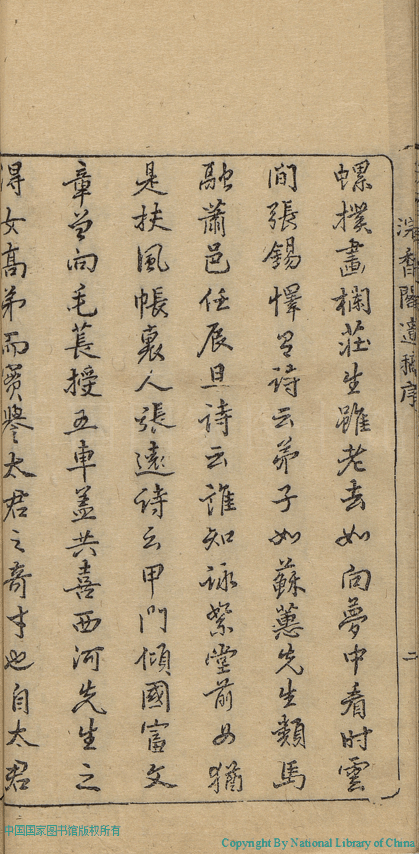 浣香閣遺稿序
二
螺撲畫欄莊生雖老去如向夢中看時雲
間張錫懌呈詩云弟子如蘇蕙先生類馬
融蕭邑任辰旦詩云誰知詠絮堂前女猶
是扶風帳裏人張遠詩云甲門傾國富文
章曾向毛萇授五車蓋共喜西河先生之
得女高弟而實譽太君之奇才也自太君
中国国家图书馆版权所有
Copyright By National Library of China